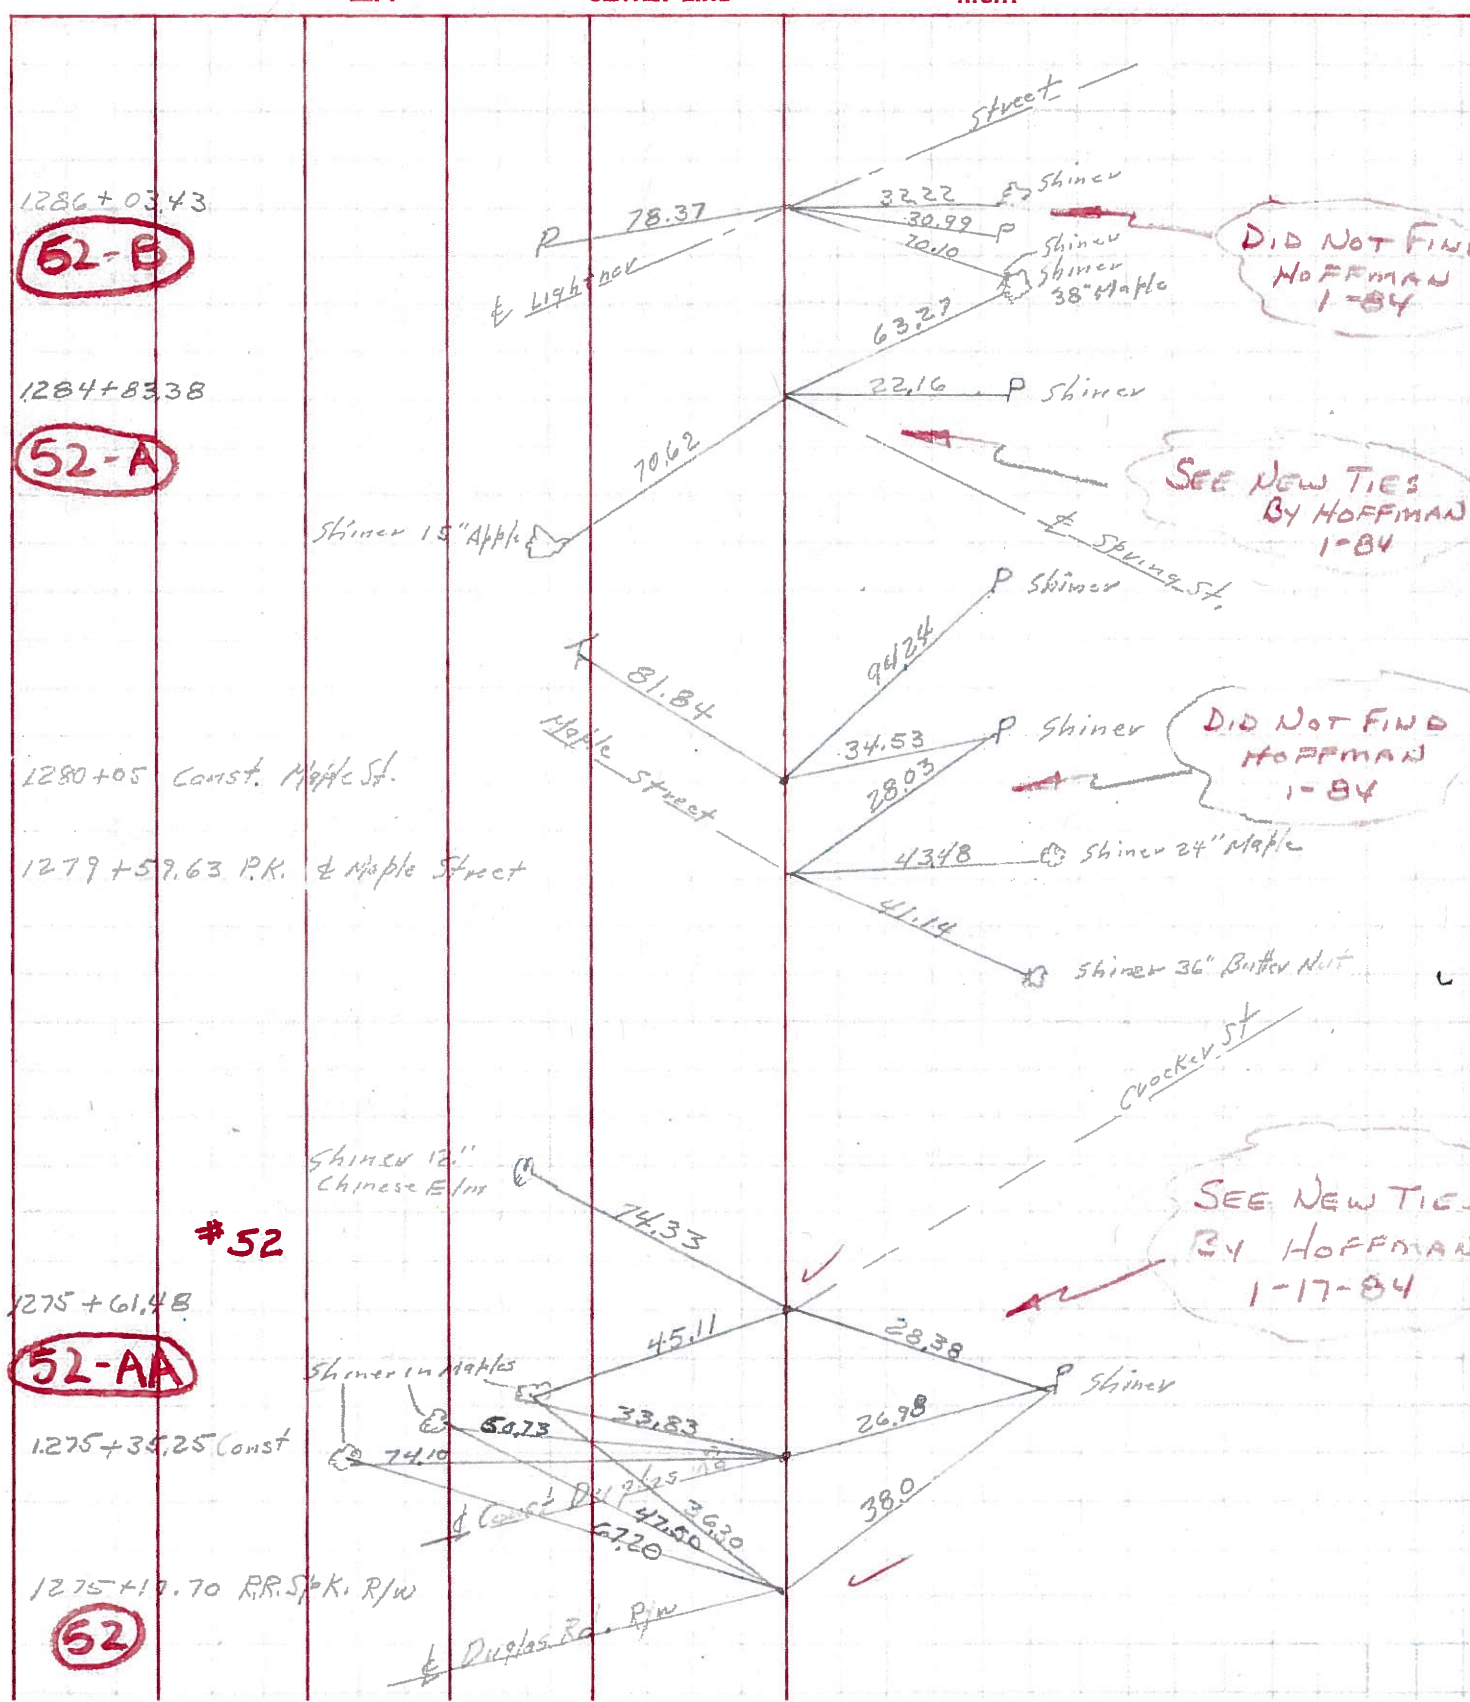 Street
1286+03.43
52-B
78.37
32.22
Shiner
30.99
70.10
Shiner
Shiner
38" Maple
P
P
℄ Lightner
DID NOT FIND
HOFFMAN
1-84
63.27
1284+83.38
22.16
P Shiner
52-A
70.62
Shiner 15" Apple
SEE NEW TIES
BY HOFFMAN
1-84
℄ Spring St.
P Shiner
94.24
81.84
Maple Street
34.53
P Shiner
28.03
DID NOT FIND
HOFFMAN
1-84
1280+05 Const. Maple St.
1279+59.63 P.K. ℄ Maple Street
43.48
Shiner 24" Maple
41.14
Shiner 36" Butter Nut
Crocker St
Shiner 12"
Chinese Elm
74.33
#52
SEE NEW TIES
BY HOFFMAN
1-17-84
1275+61.48
52-AA
45.11
28.38
Shiner in Maples
P Shiner
33.83
50.73
26.98
1275+35.25 Const
74.10
℄ Const
36.30
47.50
67.20
38.0
R.R. Spk. R/W
52
℄ Duplas Rd. R/W